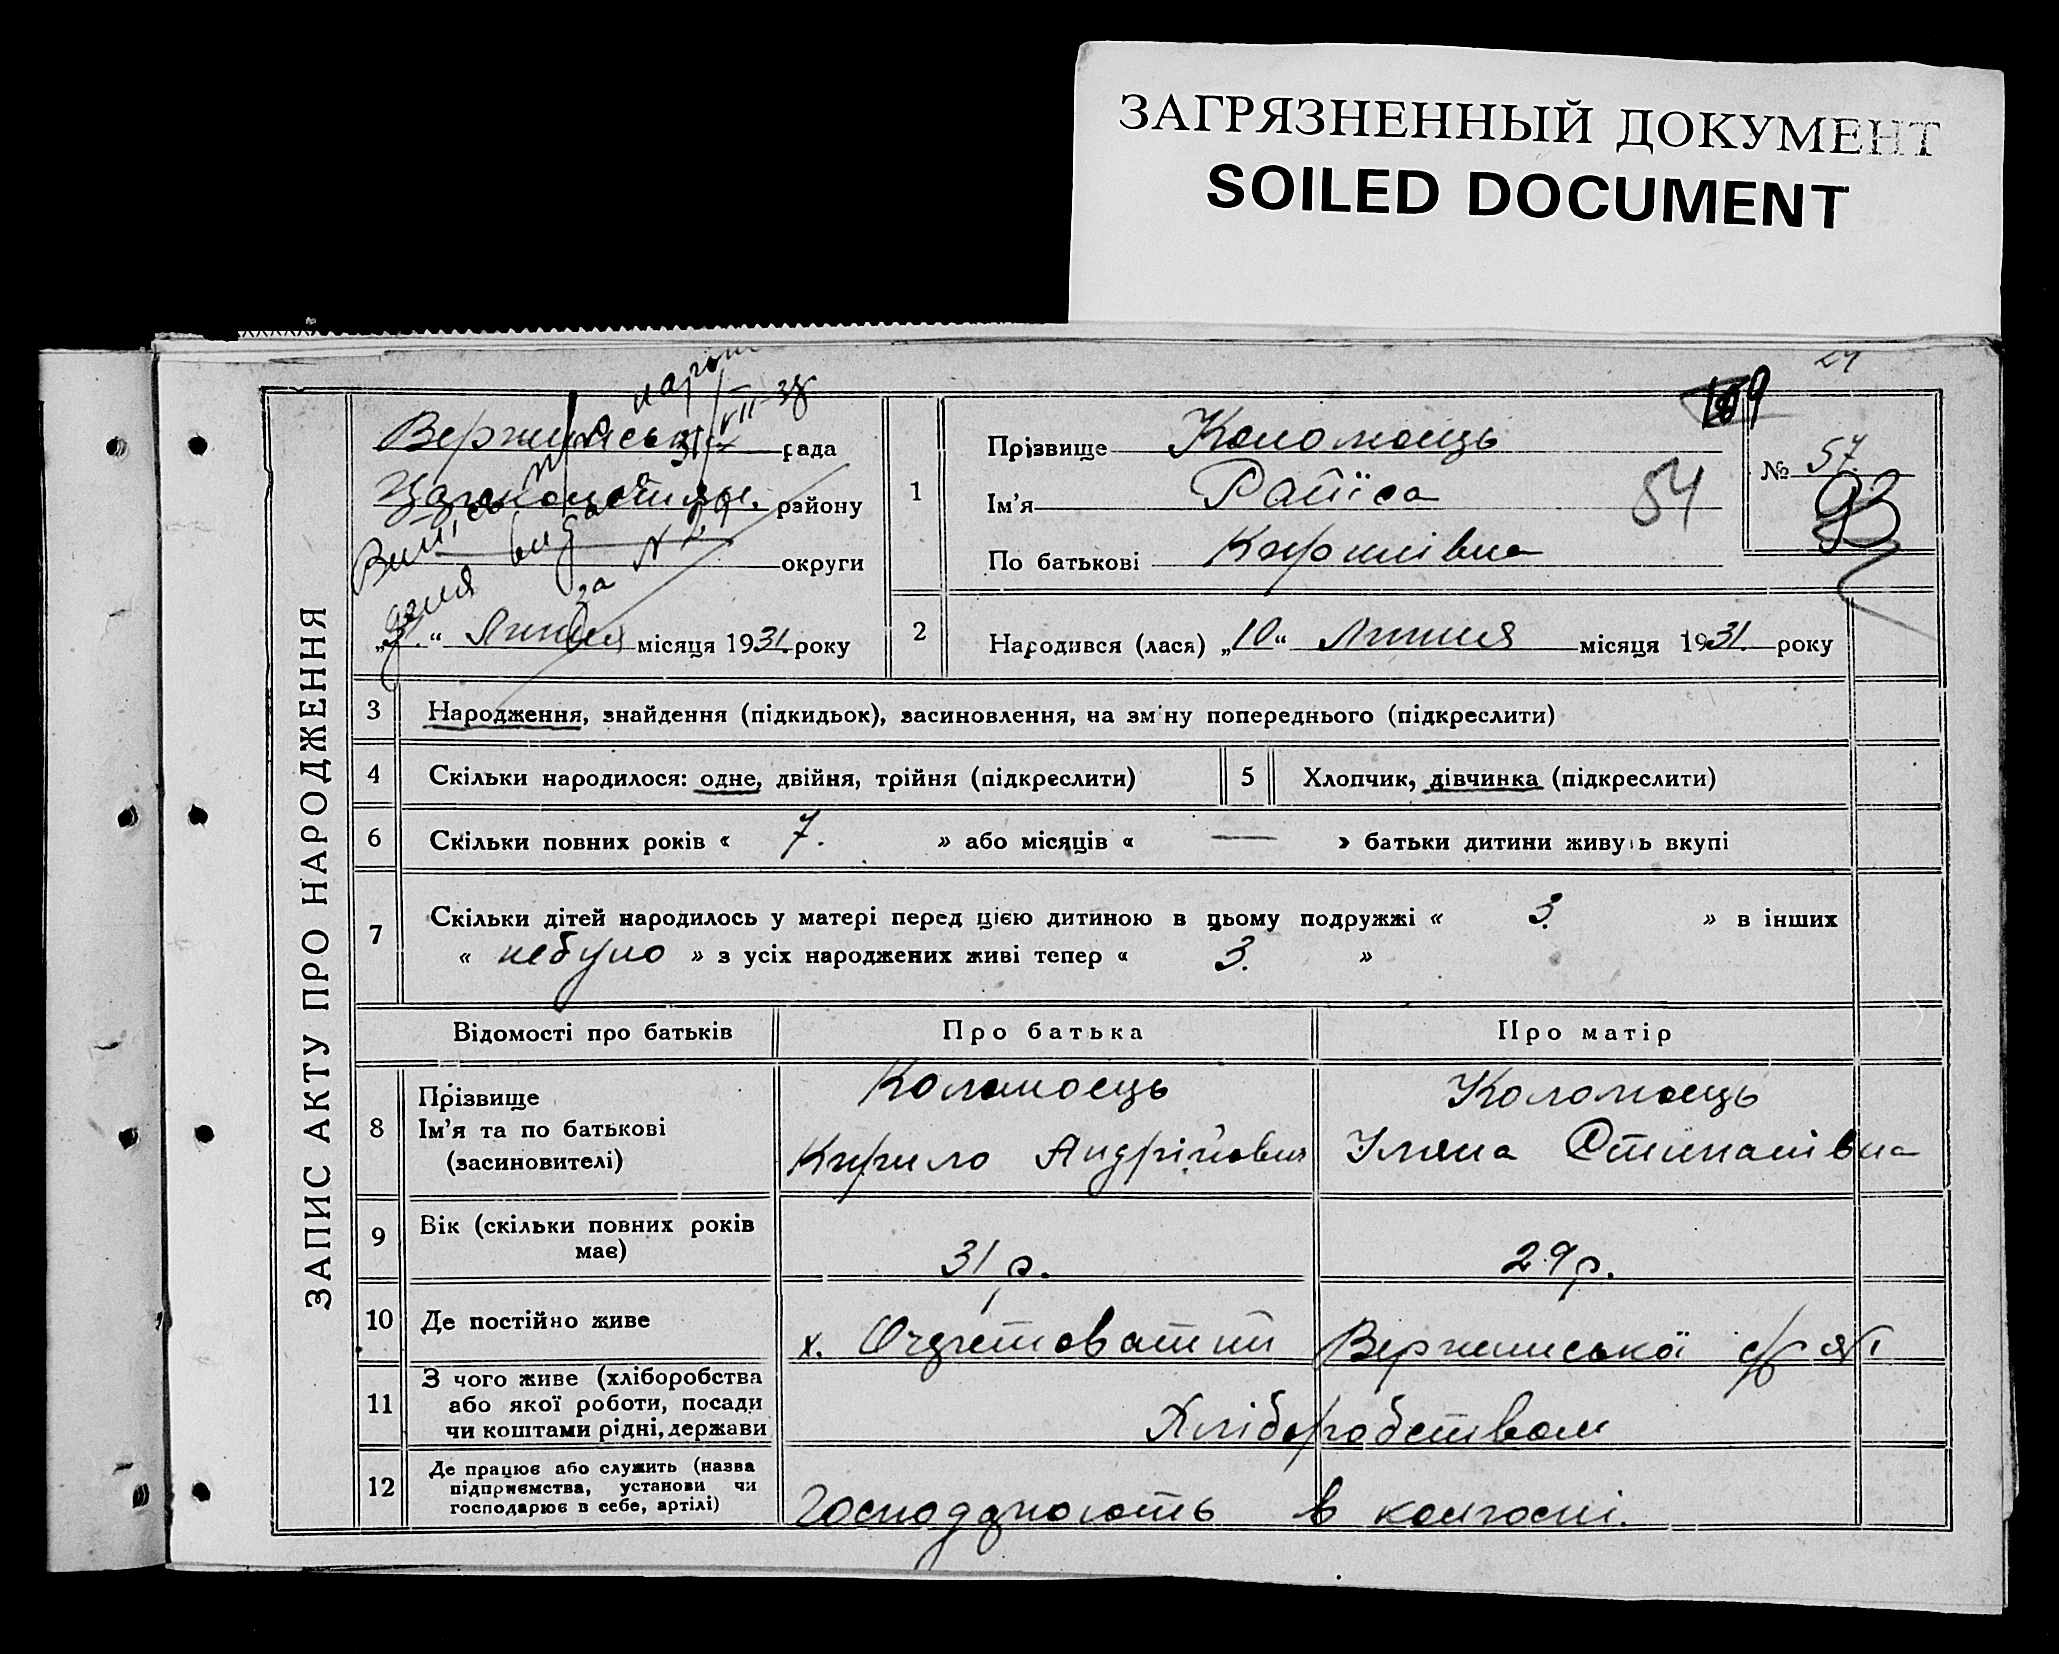 ЗАГРЯЗНЕННЫЙ ДОКУМЕНТ
SOILED DOCUMENT
ЗАПИС АКТУ ПРО НАРОДЖЕННЯ
рада
району
округи
"31." Липня місяця 1931. року
1
Прізвище Коломоєць
Ім'я Раїса
По батькові Кирилівна
54
№ 57.
93
2 Народився (лася) „10" Липня місяця 1931. року
3 Народження, знайдення (підкидьок), засиновлення, на зміну попереднього (підкреслити)
4 Скільки народилося: одне, двійня, трійня (підкреслити)
5 Хлопчик, дівчинка (підкреслити)
6 Скільки повних років « 7. » або місяців « — » батьки дитини живуть вкупі
7 Скільки дітей народилось у матері перед цією дитиною в цьому подружжі « 3. » в інших
« небуло » з усіх народжених живі тепер « 3. »
Відомості про батьків Про батька Про матір
8 Прізвище
Ім'я та по батькові
(засиновителі)
Коломоєць
Кирило Андрійович
Коломоєць
Уляна Степанівна
9 Вік (скільки повних років
має)
31 р. 29 р.
10 Де постійно живе
х.
11 З чого живе (хліборобства
або якої роботи, посади
чи коштами рідні, держави
Хліборобством
12 Де працює або служить (назва
підприємства, установи чи
господарює в себе, артілі)
Господарюють в колгоспі.